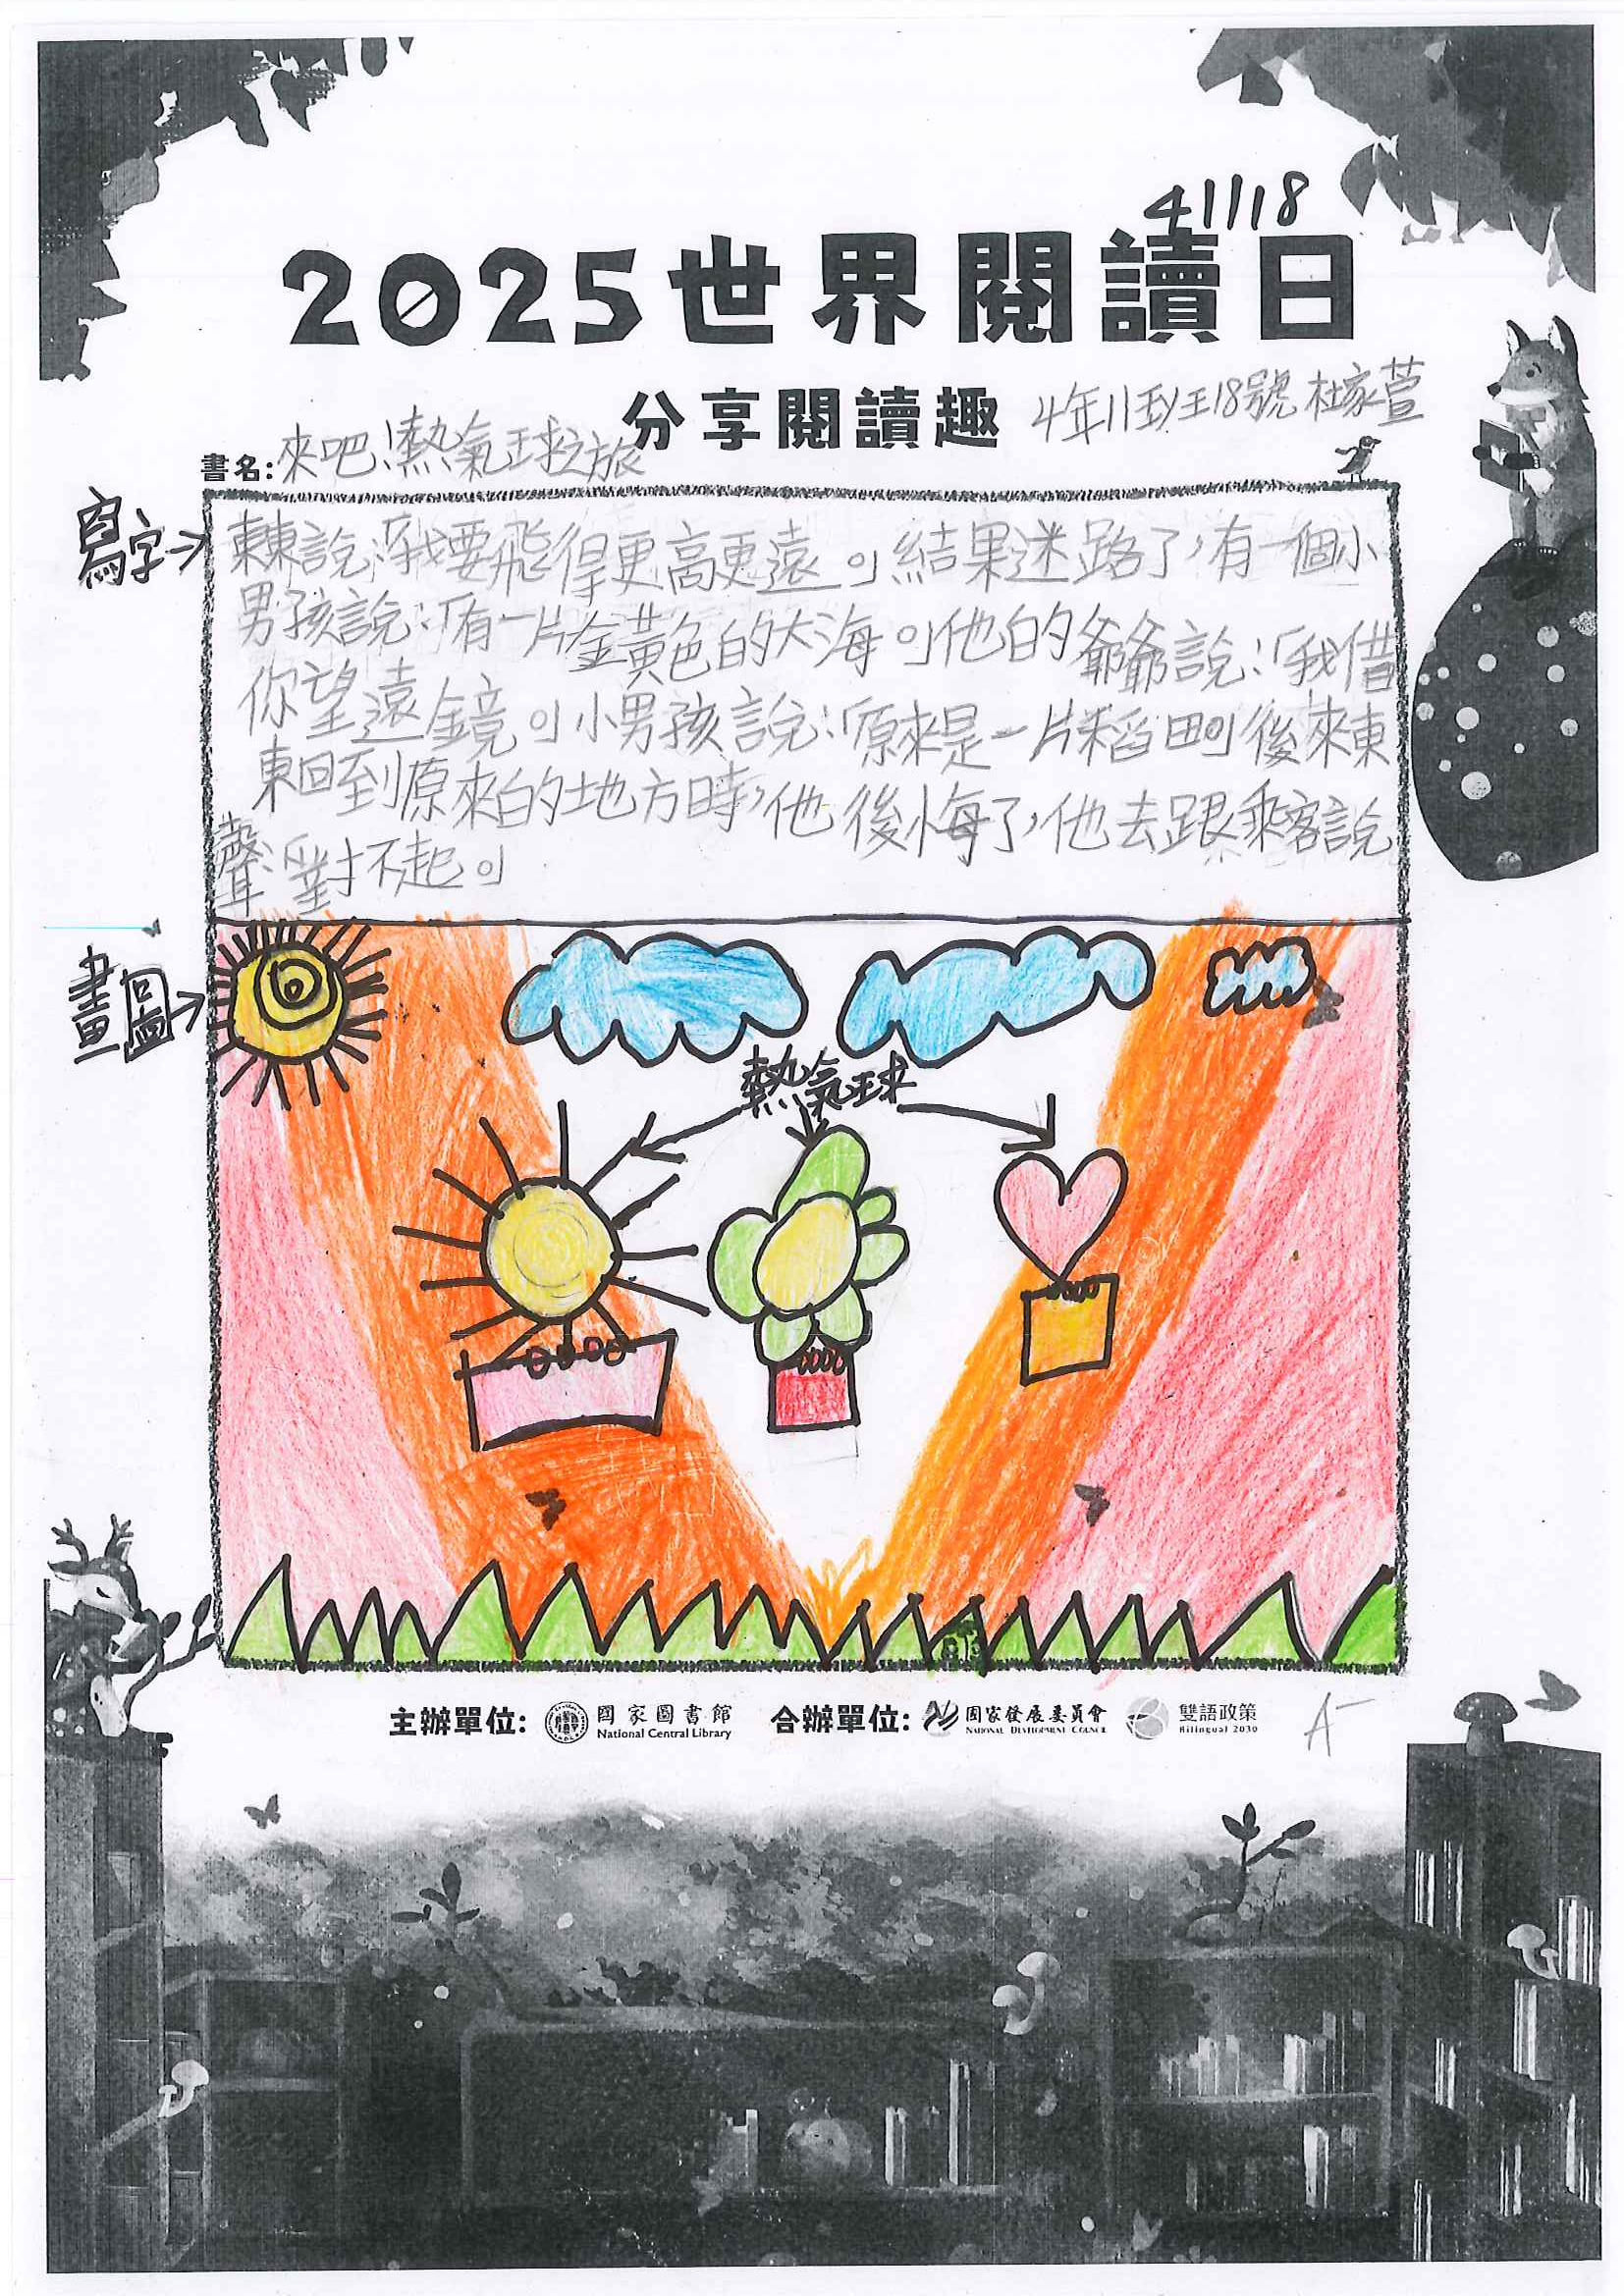 41118
2025世界閱讀日
分享閱讀趣
4年11班18號 杜家萱
書名:來吧!熱氣球之旅
寫字→
東東說:「我要飛得更高更遠。」結果迷路了,有一個小
男孩說:「有一片金黃色的大海。」他的爺爺說:「我借
你望遠鏡。」小男孩說:「原來是一片稻田。」後來東
東回到原來的地方時,他後悔了,他去跟乘客說
聲:「對不起。」
畫圖→
熱氣球
主辦單位: 國家圖書館 National Central Library 合辦單位: 國家發展委員會 NATIONAL DEVELOPMENT COUNCIL 雙語政策 Bilingual 2030
A-